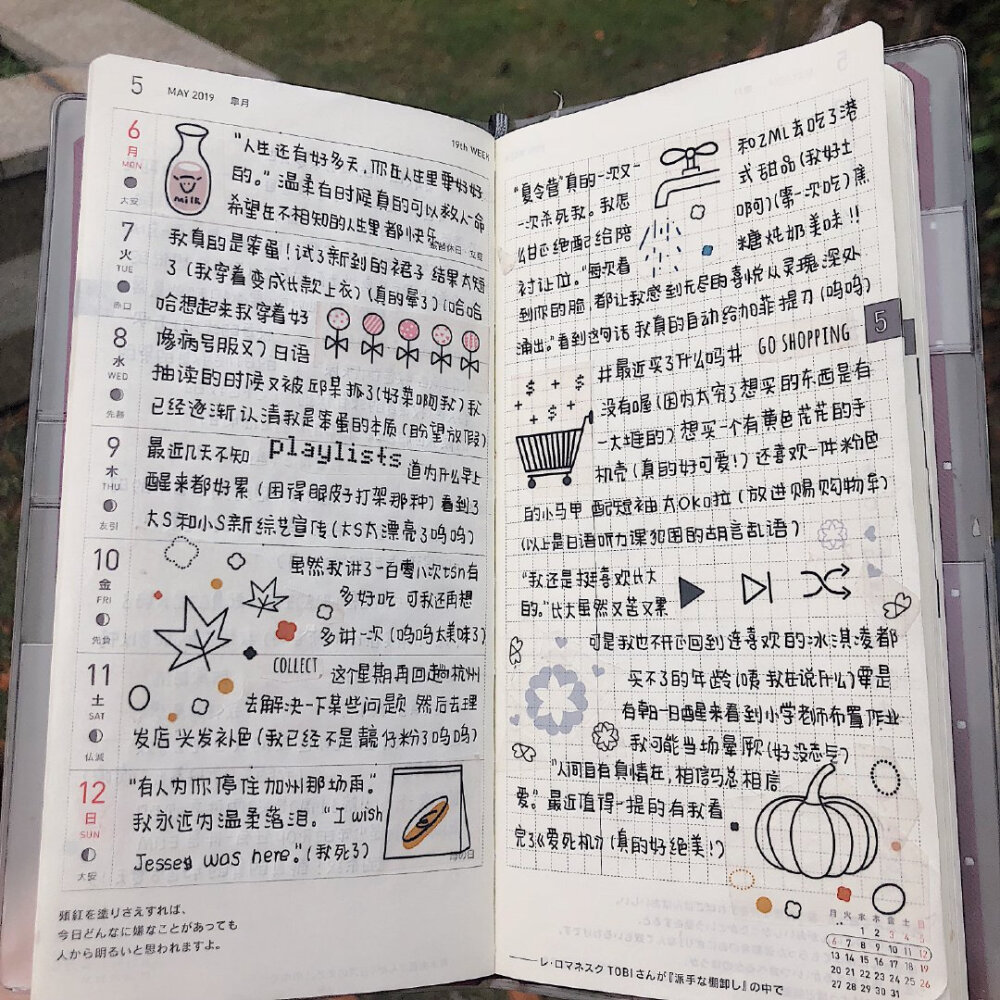 5 MAY 2019 皐月
19th WEEK
6
月
MON
大安
milk
"人生还有好多天,你在人生里要好好
的。"温柔有时候真的可以救人一命
希望在不相知的人生里都快乐
7
火
TUE
赤口
我真的是笨蛋!试了新到的裙子 结果太短
了(我穿着变成长款上衣)(真的晕了)(哈哈
哈想起来我穿着好
8
水
WED
先勝
像病号服又)日语
抽读的时候又被邱呆抓了(好菜啊我)我
已经逐渐认清我是笨蛋的本质(盼望放假)
9
木
THU
友引
最近几天不知 playlists 道为什么早上
醒来都好累(困得眼皮子打架那种)看到了
大S和小S新综艺宣传(大S太漂亮了呜呜)
10
金
FRI
先負
虽然我讲了一百零八次tsn有
多好吃 可我还再想
多讲一次(呜呜太美味了)
11
土
SAT
仏滅
COLLECT
这个星期再回趟杭州
去解决一下某些问题 然后去理
发店 头发补色(我已经不是靓仔粉了呜呜)
12
日
SUN
大安
"有人为你停住加州那场雨。"
我永远为温柔落泪。"I wish
Jessey was here."(我死了)
母の日
頬紅を塗りさえすれば、
今日どんなに嫌なことがあっても
人から明るいと思われますよ。
"夏令营"真的一次又一
一次杀死我。我怎
么甘心绝配给陪
衬让位。"每次看
到你的脸,都让我感到无尽的喜悦从灵魂深处
涌出。"看到这句话 我真的自动给加菲提刀(呜呜)
和ZML去吃了港
式甜品(我好土
啊)(第一次吃)焦
糖炖奶美味!!
5
#最近买了什么吗# GO SHOPPING
没有喔(因为太穷了想买的东西是有
一大堆的)想买一个有黄色花花的手
机壳(真的好可爱!)还喜欢一件粉色
的小马甲 配短袖太OK啦(放进赐购物车)
(以上是日语听力课犯困的胡言乱语)
"我还是挺喜欢比太
的。"比太虽然又苦又累
可是我也不开心回到连喜欢的冰淇凌都
买不了的年龄(咦我在说什么)要是
有朝一日醒来看到小学老师布置作业
我可能当场晕厥(好没志气)
"人间自有真情在,相信马总相信
爱。"最近值得一提的有我看
完了《爱死机》(真的好绝美!)
月 火 水 木 金 土 日
1 2 3 4 5
6 7 8 9 10 11 12
13 14 15 16 17 18 19
20 21 22 23 24 25 26
27 28 29 30 31
——レ・ロマネスク TOBIさんが『派手な棚卸し』の中で